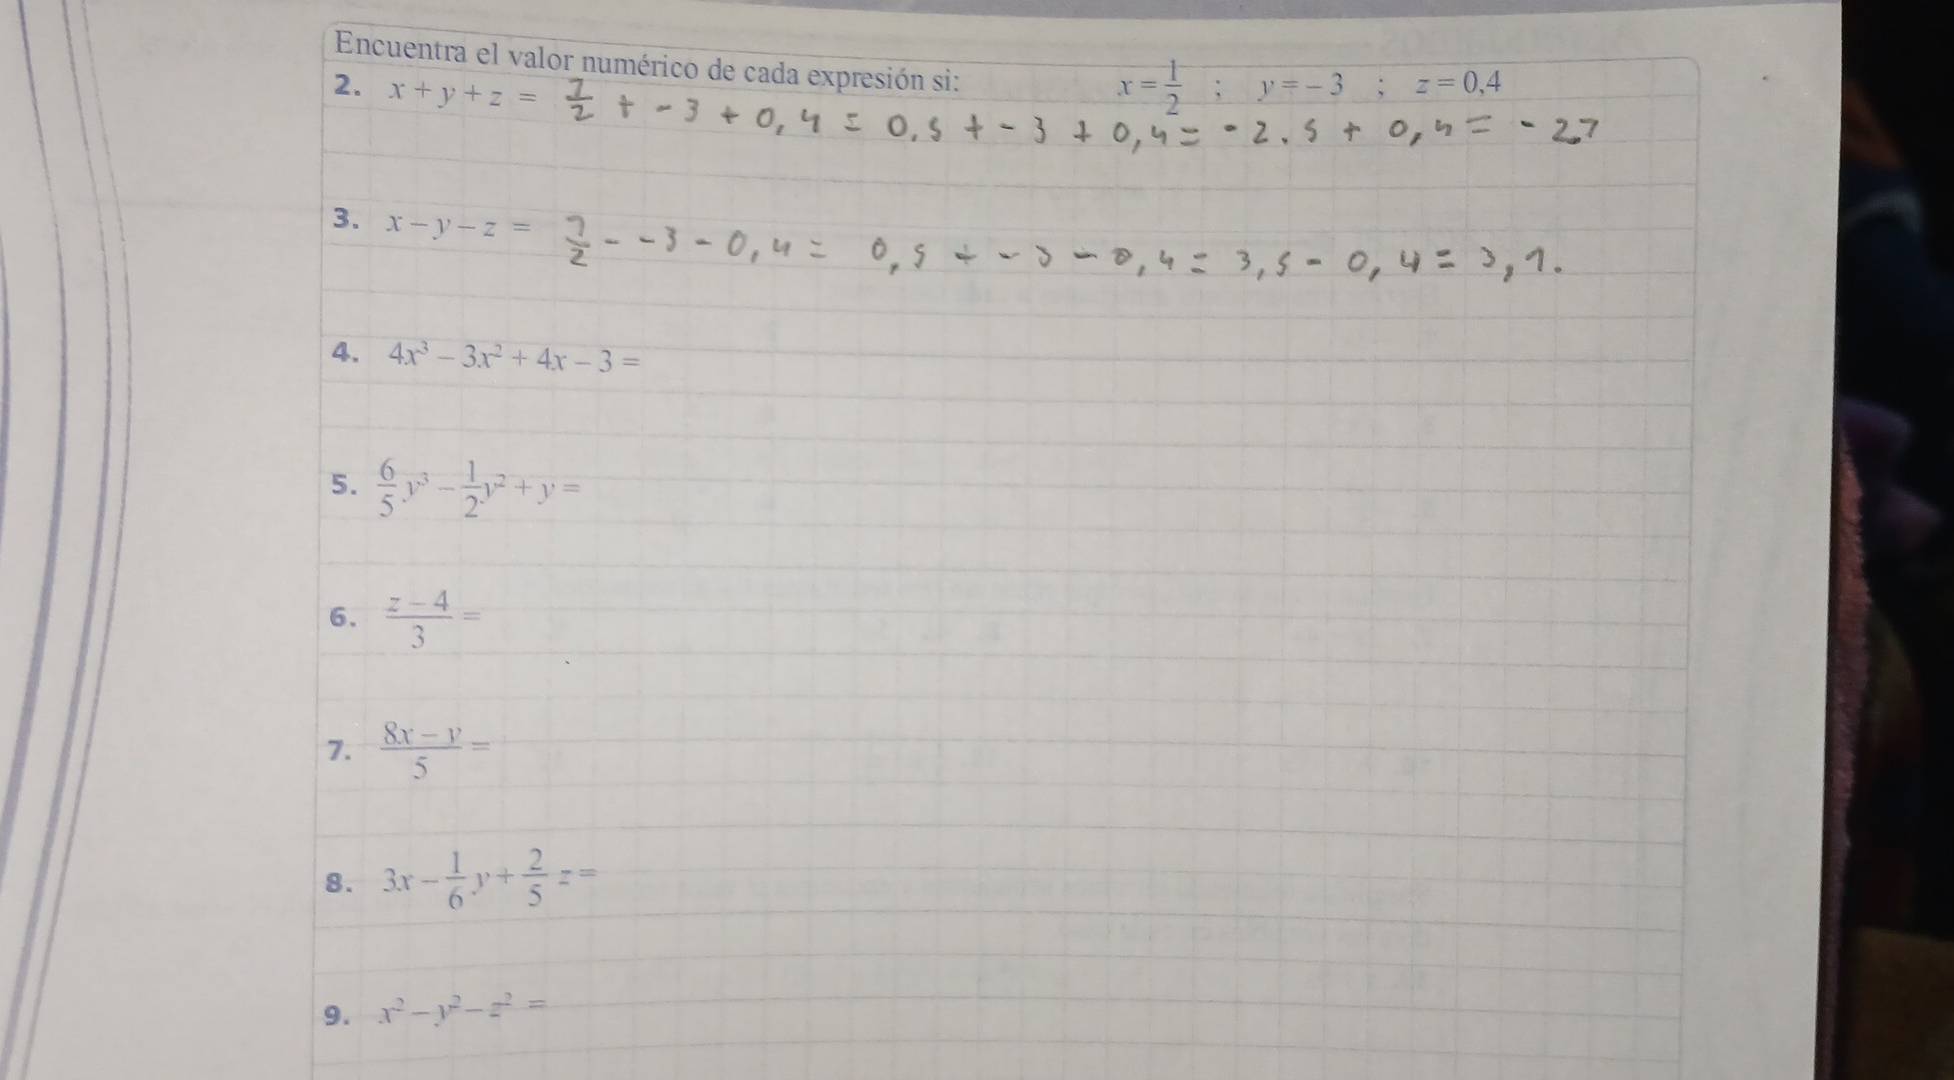 Encuentra el valor numérico de cada expresión si: x = 1/2 ; y = − 3 ; z = 0,4
2. x + y + z = 1/2 + - 3 + 0,4 = 0.5 + - 3 + 0,4 = - 2.5 + 0,4 = - 2,7
3. x − y − z = 1/2 - - 3 - 0,4 = 0,5 + - 3 - 0,4 = 3,5 - 0,4 = 3,1.
4. 4x³ − 3x² + 4x − 3 =
5. 6/5 y³ − 1/2 y² + y =
6. (z − 4)/3 =
7. (8x − y)/5 =
8. 3x − 1/6 y + 2/5 z =
9. x² − y² − z² =